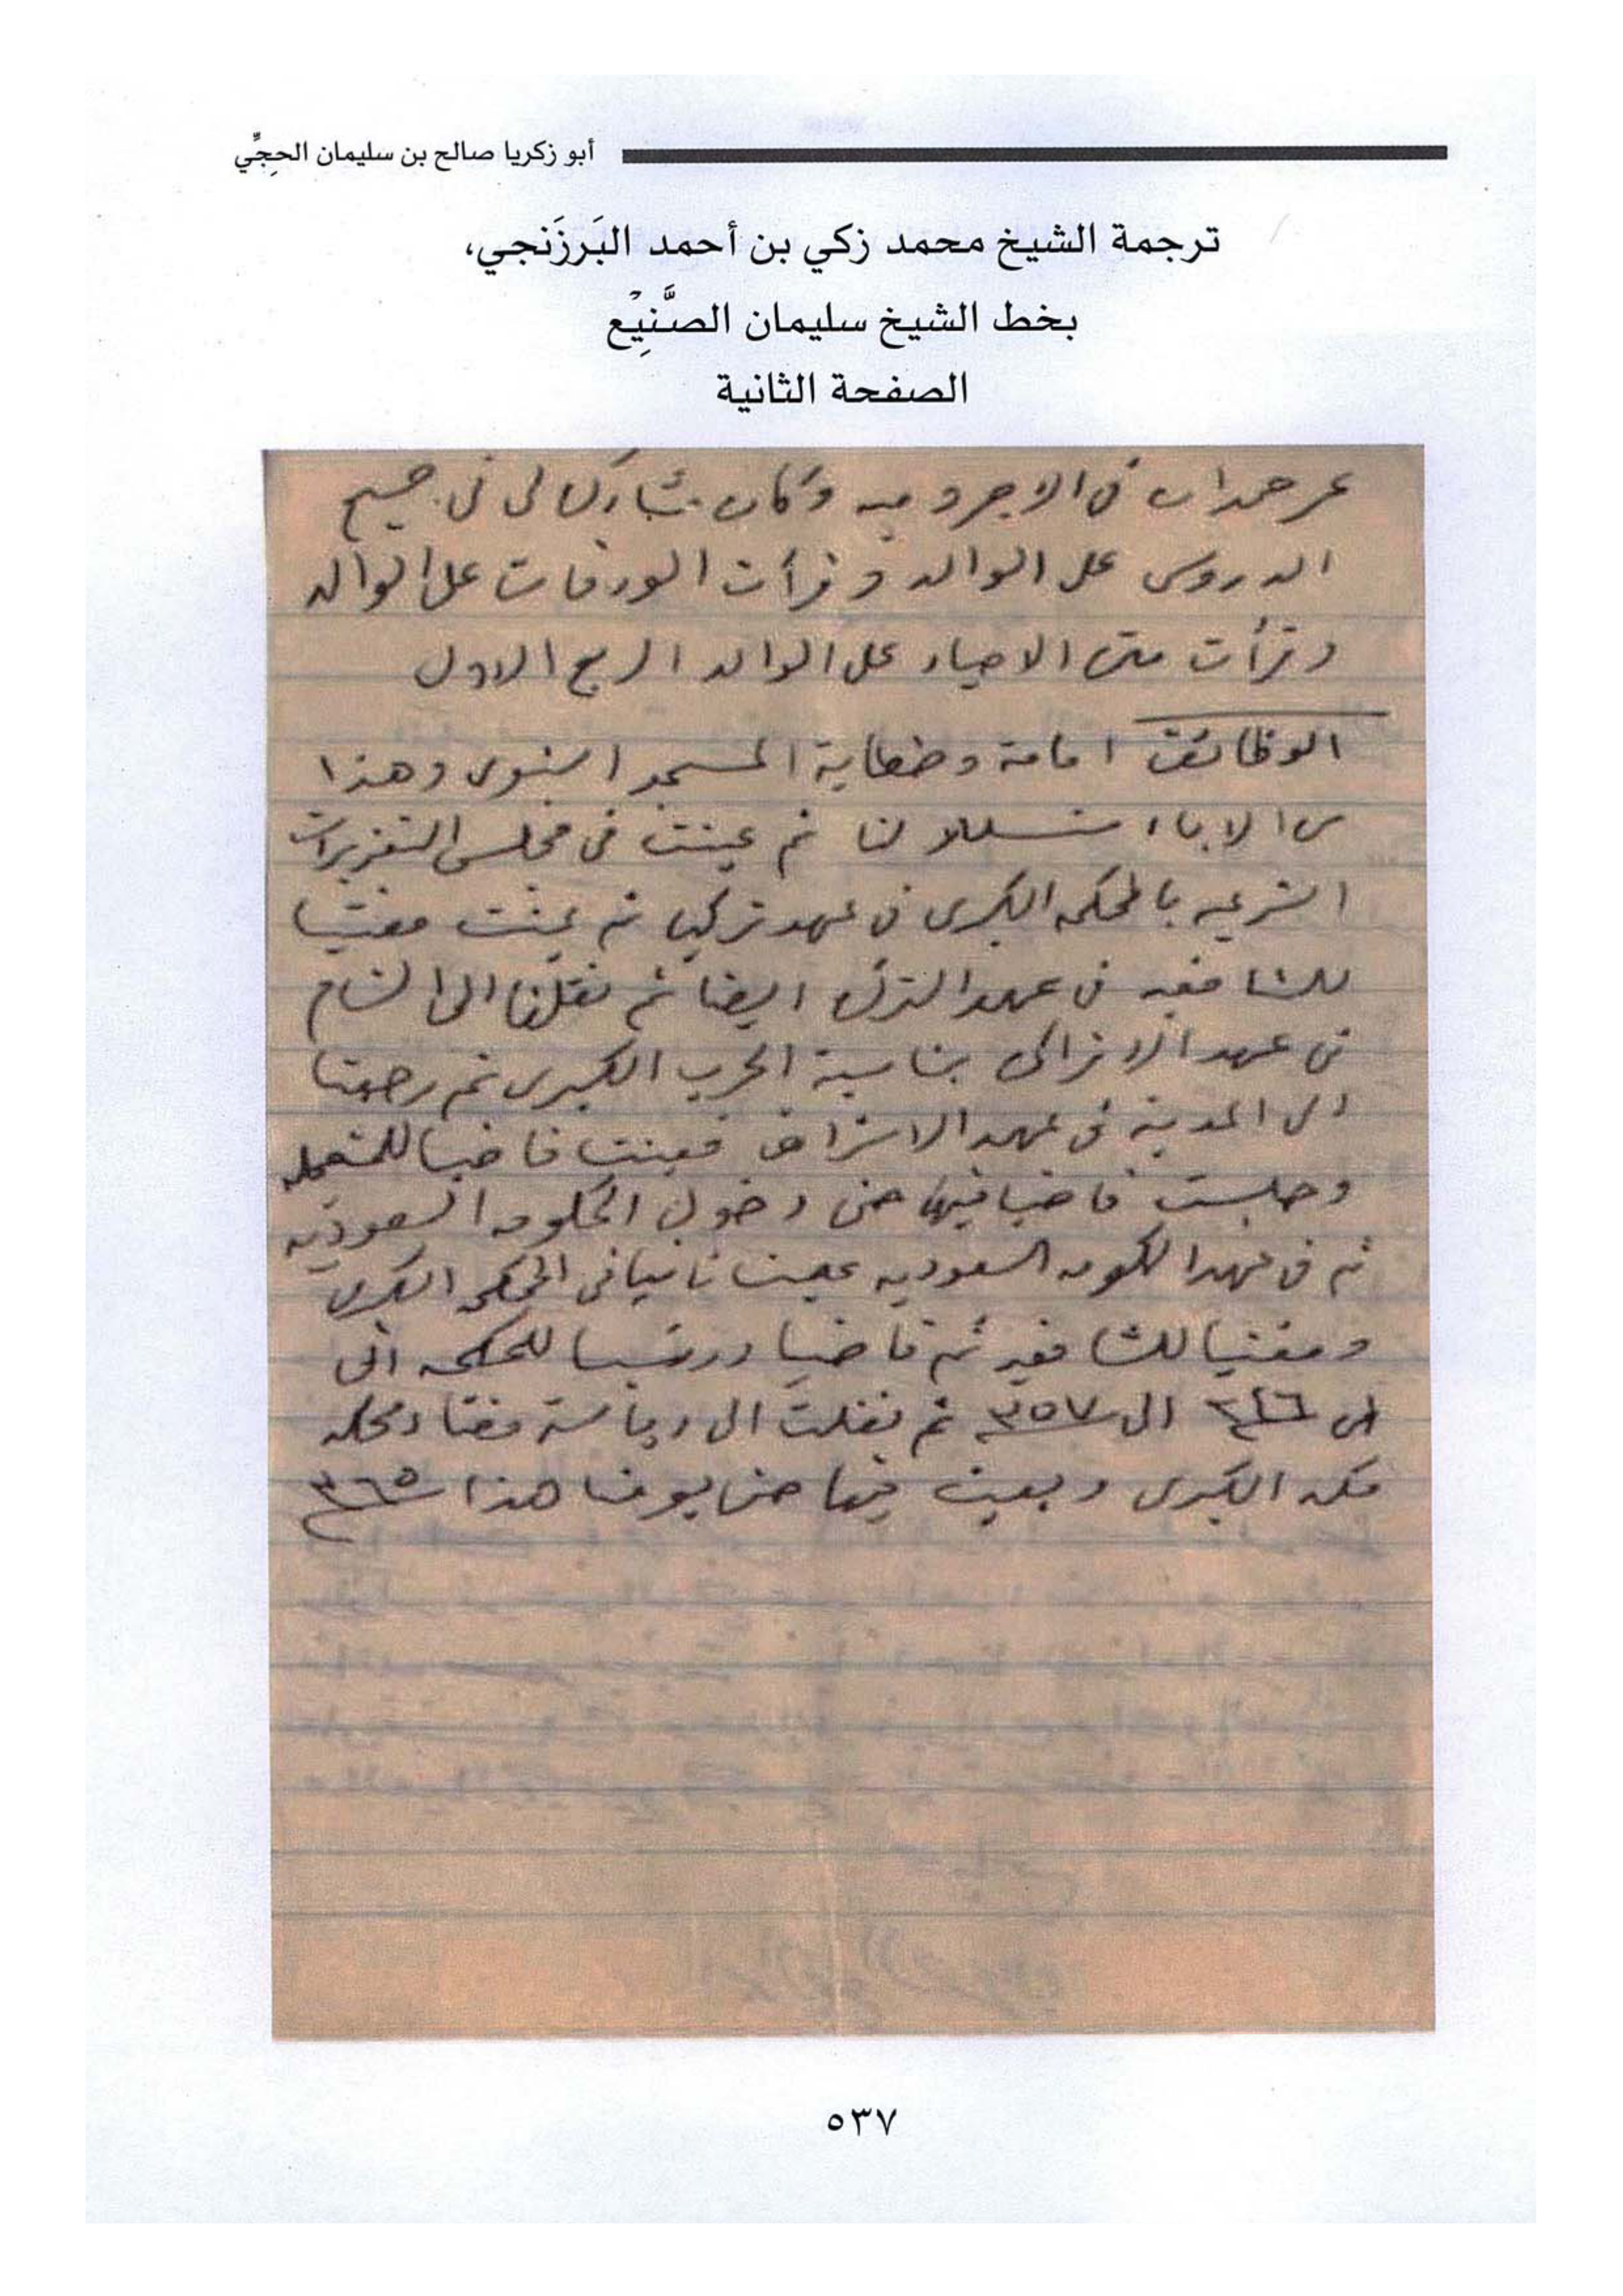 أبو زكريا صالح بن سليمان الحِجِّي
ترجمة الشيخ محمد زكي بن أحمد البَرزَنجي،
بخط الشيخ سليمان الصَّنِيْع
الصفحة الثانية
عمر حمدان في الاجروميه وكان مشاركا لي في جميع
الدروس على الوالد وقرأت الورقات على الوالد
وقرأت متن الاحياء على الوالد الربع الاول
الوظائف امامة وخطابة المسجد النبوى وهذا
من الاباء تسلل لنا ثم عينت في مجلس التعزيرات
الشرعيه بالمحكمه الكبرى في عهد تركيا ثم عينت مفتيا
للشافعيه في عهد الترك ايضا ثم نقلنا الى الشام
في عهد الاتراك بمناسبة الحرب الكبرى ثم رجعنا
الى المدينة في عهد الاشراف فعينت قاضيا للمستعجله
وجلست قاضيا فيها حتى دخول الحكومه السعوديه
ثم في عهد الحكومه السعوديه عينت نائبا في المحكمه الكبرى
ومفتيا للشافعيه ثم قاضيا ورئيسا للمحكمه الى
من ٣٤٦ الى ٣٥٧ ثم نقلت الى رياسة قضاء محكمه
مكه الكبرى وبقيت فيها حتى يومنا هذا ٣٦٥
٥٣٧